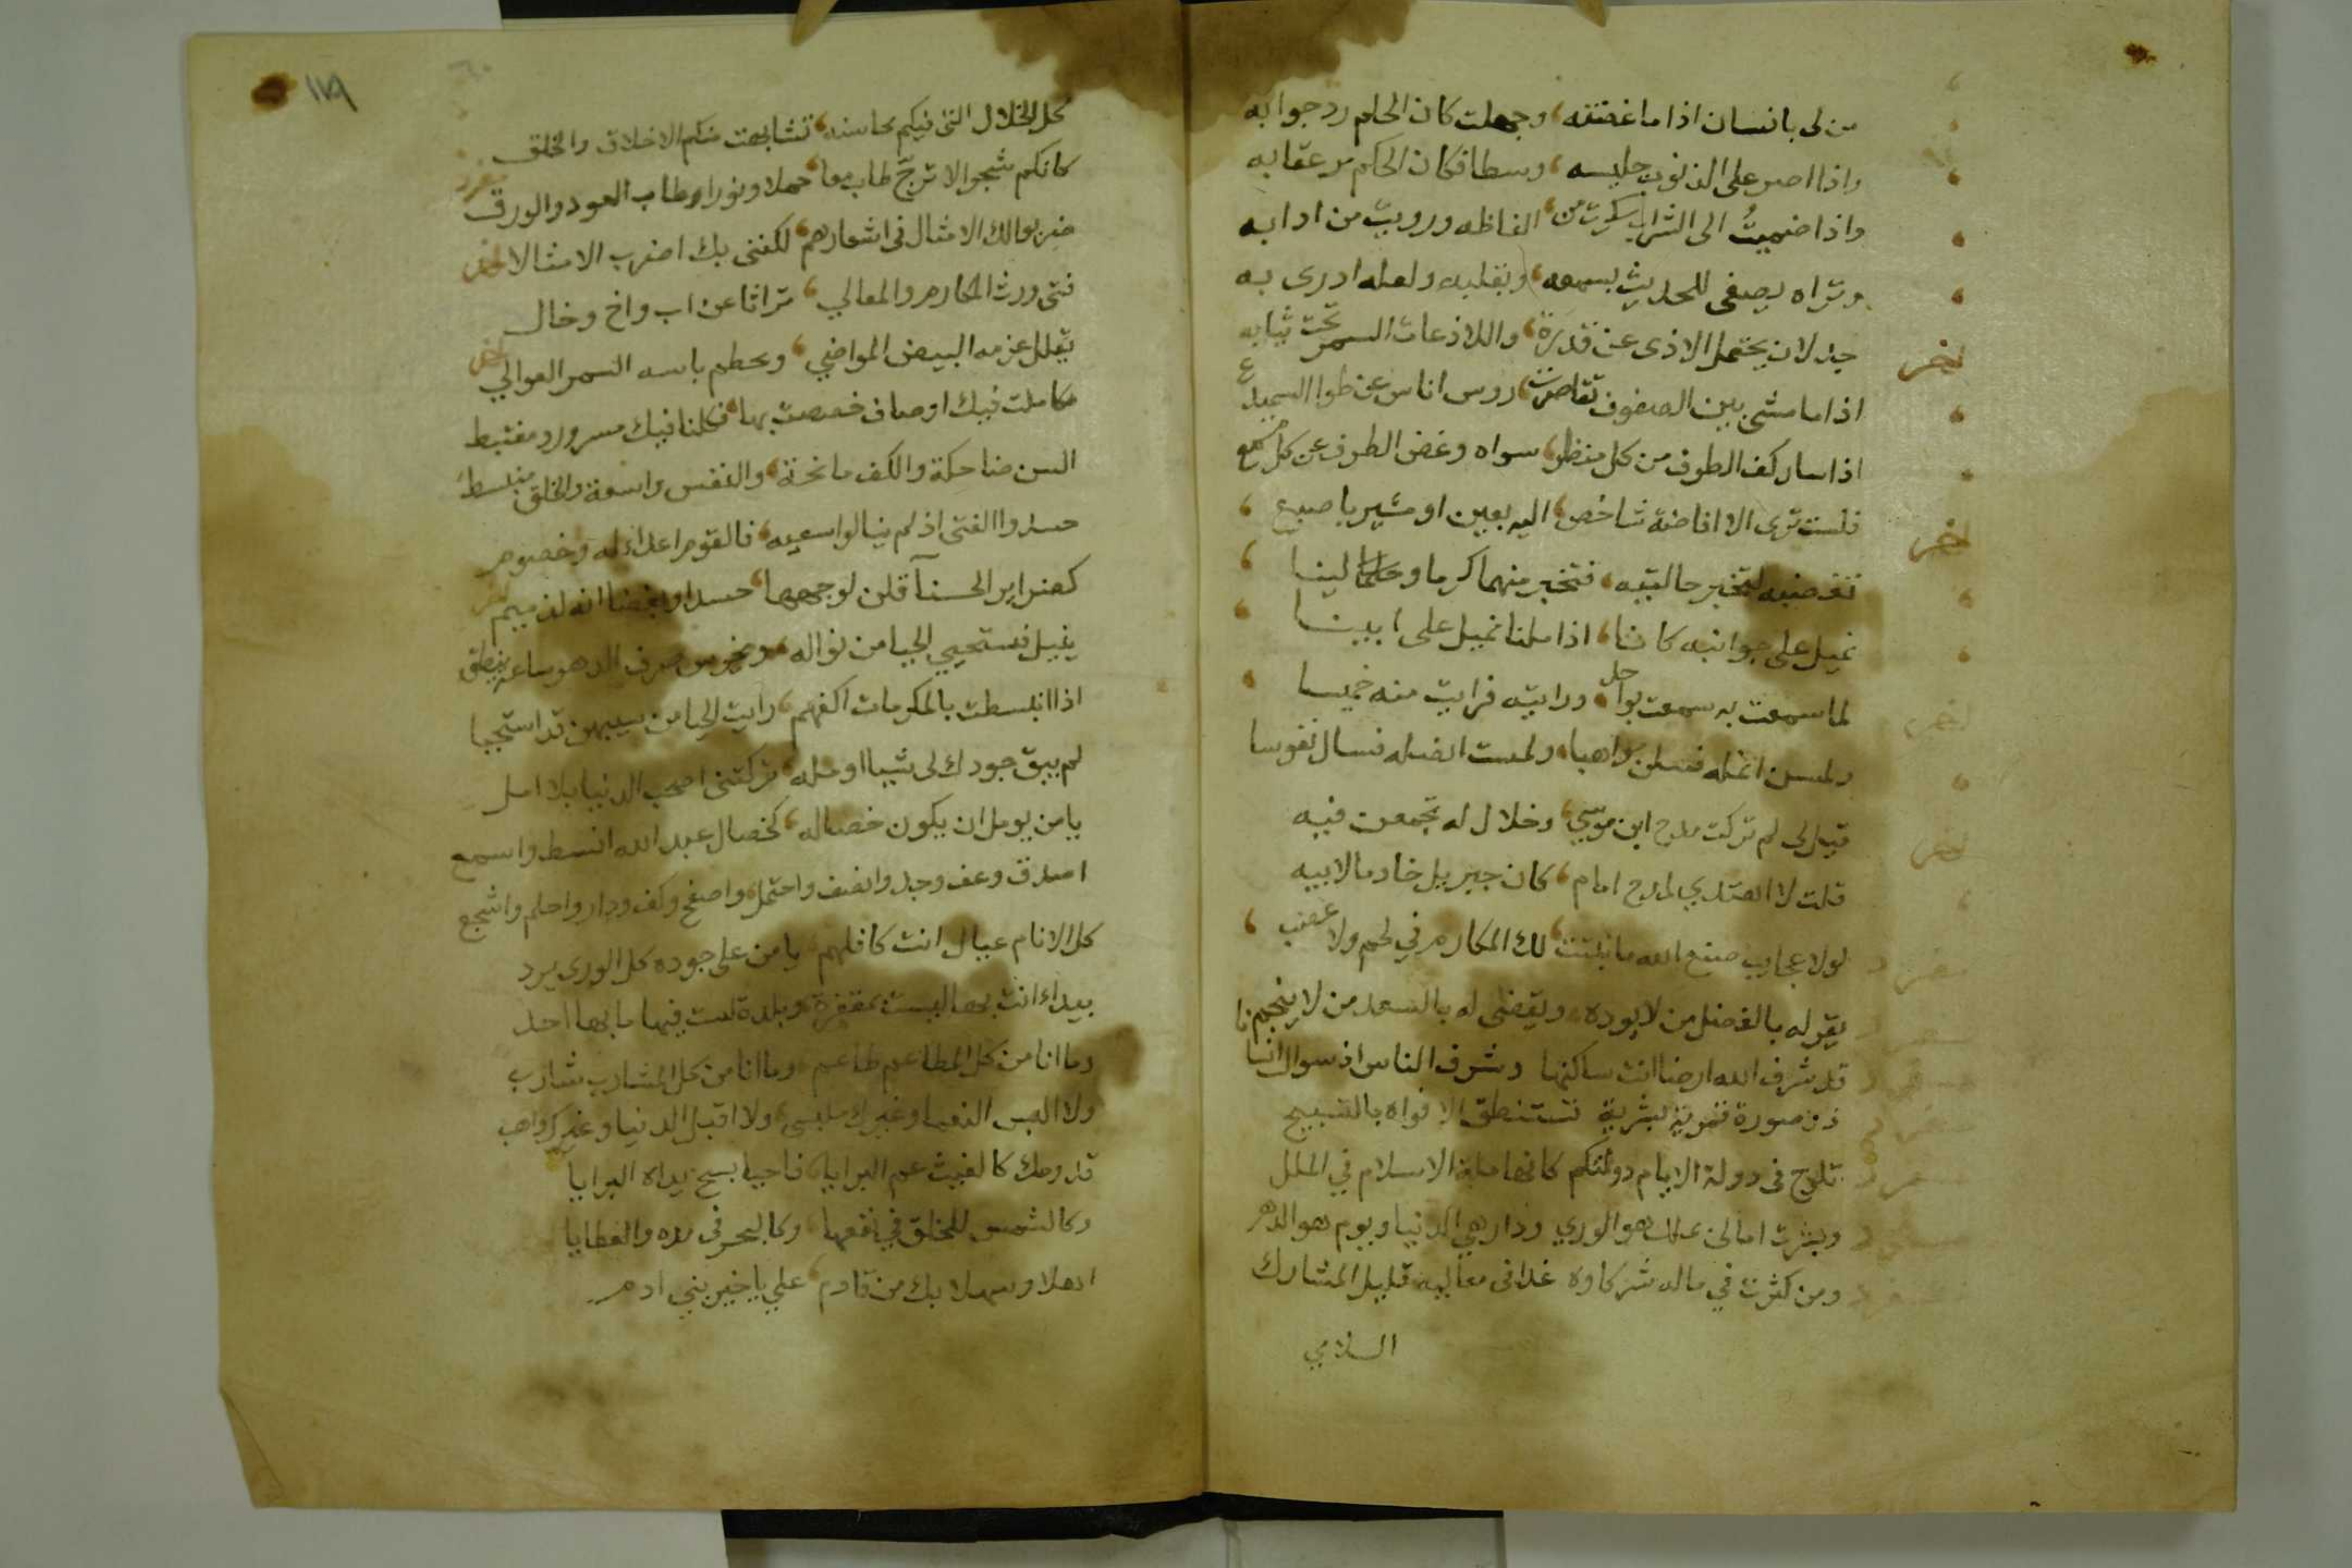 من لى بانسان اذا ما اغضبته، وجهلت كان الحلم رد جوابه
واذا اصر على الذنوب جليسه، وسطا فكان الحكم مر عقابه
واذا ضميت الى الشراب سكرت من، الفاظه ورويت من ادابه
وتراه يصغى للحديث بسمعه، وبقلبه ولعله ادرى به
اخر جدلان يحتمل الاذى عن قدرة، واللاذعات السمر تحت ثيابه
اذا ما مشى بين الصفوف تقاصرت، روس اناس عن طوا السميدع
اذا سار كف الطرف من كل منظر، سواه وغض الطرف عن كل مسمع
اخر فلست ترى الا افاضة شاخص، اليه بعين او مشير باصبع
نغضبه لنخبر حالتيه، فنخبر منهما كرما ولينا
نميل على جوانبه كاننا، اذا ملنا نميل على ابينا
اخر لما سمعت به سمعت بواحد، ورايته فرايت منه خميسا
ولمست انمله فسلن مواهبا، ولمست انصله فسال نفوسا
اخر قيل لى لم تركت مدح ابن موسي، وخلال له تجمعن فيه
قلت لا اهتدي لمدح امام، كان جبريل خادما لابيه
مفرد لولا عجايب صنع الله ما نبتت، تلك المكارم في لحم ولا عصب
مفرد يقر له بالفضل من لا يوده، ويقضى له بالسعد من لا ينجم
مفرد قد شرف الله ارضا انت ساكنها وشرف الناس اذ سواك انسانا
مفرد ذو صورة قمرية بشرية تستنطق الافواه بالتسبيح
مفرد تلوح فى دولة الايام دولتكم كانها ملة الاسلام في الملل
مفرد وبشرت امالى بملك هو الوري ودار هى الدنيا ويوم هو الدهر
مفرد ومن كثرت في ماله شركاوه غدا فى معاليه قليل المشارك
السلامي
١١٩
كل الخلال التى فيكم محاسنه، تشابهت منكم الاخلاق والخلق
كانكم شجر الاترج طاب معا، حملا ونورا وطاب العود والورق مفرد
ضربوا لك الامثال فى اشعارهم، لكننى بك اضرب الامثالا اخر
فتى ورث المكارم والمعالي، تراثا عن اب واخ وخال
يفلل عزمه البيض المواضي، ويحطم باسه السمر العوالي اخر
تكاملت فيك اوصاف خصصت بها، فكلنا فيك مسرور ومغتبط
السن ضاحكة والكف مانحة، والنفس واسعة والخلق منبسط
حسدوا الفتى اذ لم ينالوا سعيه، فالقوم اعداء له وخصوم
كضراير الحسنآ قلن لوجهها، حسدا وبغضا انه لذميم اخر
ينيل فتستحيي الحيا من نواله، ويخرس صرف الدهر ساعة ينطق
اذا انبسطت بالمكرمات اكفهم، رايت الحيا من سيبهن قد استحيا
لم يبق جودك لى شييا اومله، تركتنى اصحب الدنيا بلا امل
يا من يومل ان يكون خصاله، كخصال عبد الله انصت واسمع
اصدق وعف وجد وانصف واحتمل، واصفح وكف ودار واحلم واشجع
كل الانام عيال انت كافلهم، يا من على جوده كل الورى يرد
بيداء انت بها ليست بمقفرة، وبلدة لست فيها ما بها احد
وما انا من كل المطاعم طاعم، وما انا من كل المشارب شارب
ولا البس النعما وغيرك ملبسى، ولا اقبل الدنيا وغيرك واهب
قدومك كالغيث عم البرايا، فاحيا بسح يداه البرايا
وكالشمس للخلق في نفعها، وكالبحر فى مده والعطايا
اهلا وسهلا بك من قادم، علي يا خير بنى ادم